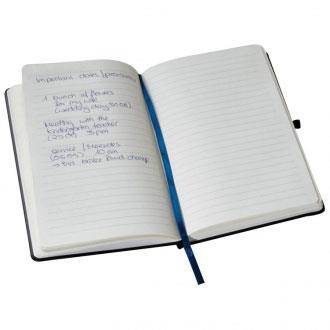 Important dates / 
1 bunch of flowers
for my wife
(wedding day
Meeting with the
kindergarten teacher
3 pm
Service / Mercedes
10 am
→ incl. brake fluid change